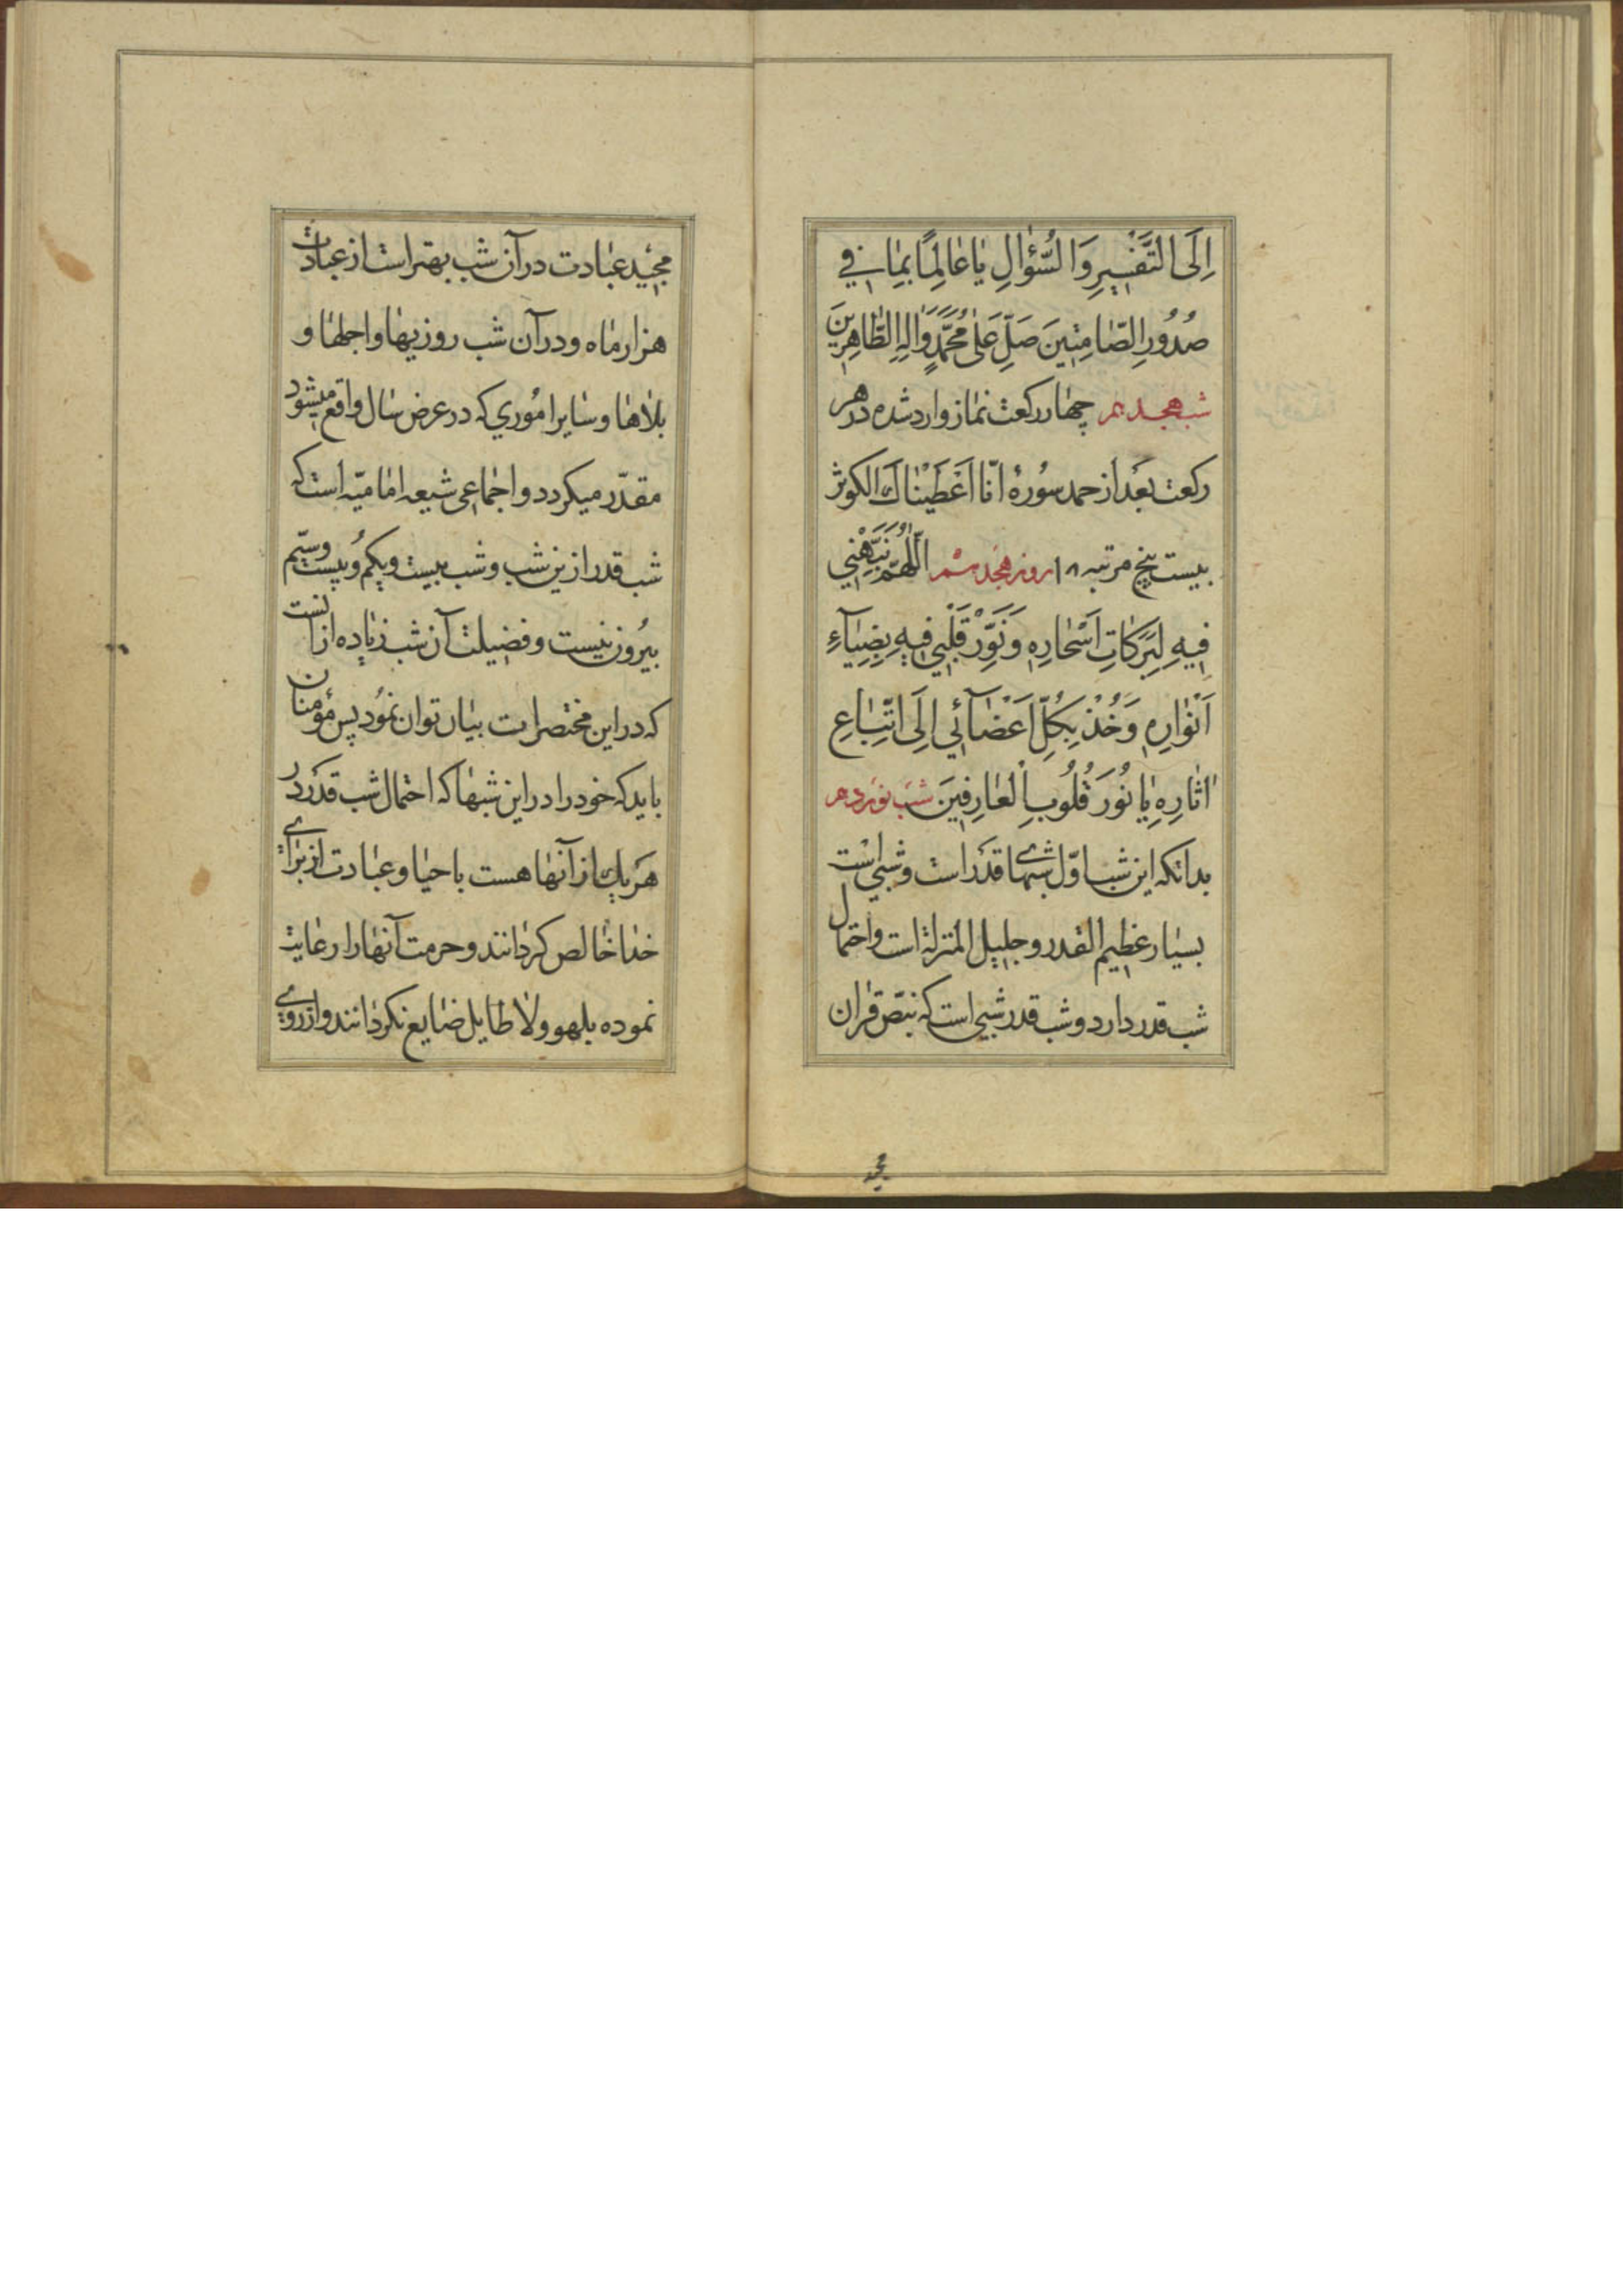 اِلَى التَّفْسِيرِ وَالسُّؤالِ يٰا عٰالِمًا بِمٰا فِي
صُدُورِ الصّٰامِتِينَ صَلِّ عَلىٰ مُحَمَّدٍ وَاٰلِهِ الطّٰاهِرِينَ
شب هجدهم چهار رکعت نماز وارد شده در هر
رکعت بعد از حمد سورهٔ انّا اعطیناک الکوثر
بیست پنج مرتبه ۱۸ روز هجدهم اَللّٰهُمَّ نَبِّهْنِي
فِيهِ لِبَرَكٰاتِ اَسْحٰارِهِ وَنَوِّرْ قَلْبِي فِيهِ بِضِيٰآءِ
اَنْوٰارِهِ وَخُذْ بِكُلِّ اَعْضٰآئِي اِلَى اتِّبٰاعِ
اٰثٰارِهِ يٰا نُورَ قُلُوبِ الْعٰارِفِينَ شب نوزدهم
بدانکه این شب اوّل شبهای قدر است و شبی است
بسیار عظیم القدر و جلیل المنزلة است و احتمال
شب قدر دارد و شب قدر شبی است که بنصّ قران
مجید
مجید عبادت در آن شب بهتر است از عبادت
هزار ماه و در آن شب روزیها و اجلها و
بلاها و سایر اموری که در عرض سال واقع میشود
مقدّر میگردد و اجماعی شیعه امامیّه است که
شب قدر ازین شب و شب بیست و یکم و بیست و سیّم
بیرون نیست و فضیلت آن شب زیاده از انست
که در این مختصرات بیان توان نمود پس مؤمنان
باید که خود را در این شبها که احتمال شب قدر در
هر یک از آنها هست باحیا و عبادت از برای
خدا خالص گردانند و حرمت آنها را رعایت
نموده بلهو و لا طایل ضایع نگردانند و از روی